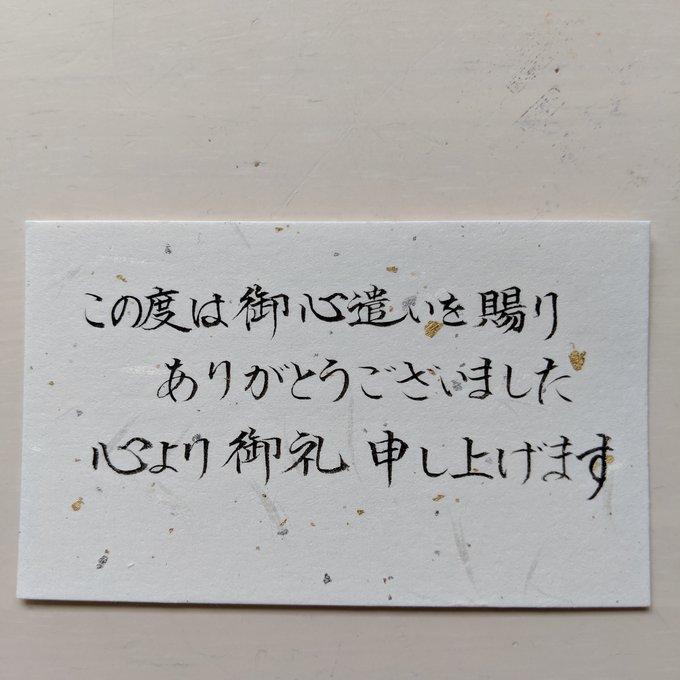 この度は御心遣いを賜り
ありがとうございました
心より御礼 申し上げます